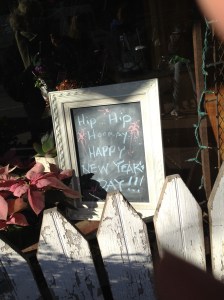 Hip Hip
Hooray
HAPPY
NEW YEARS
DAY!!!